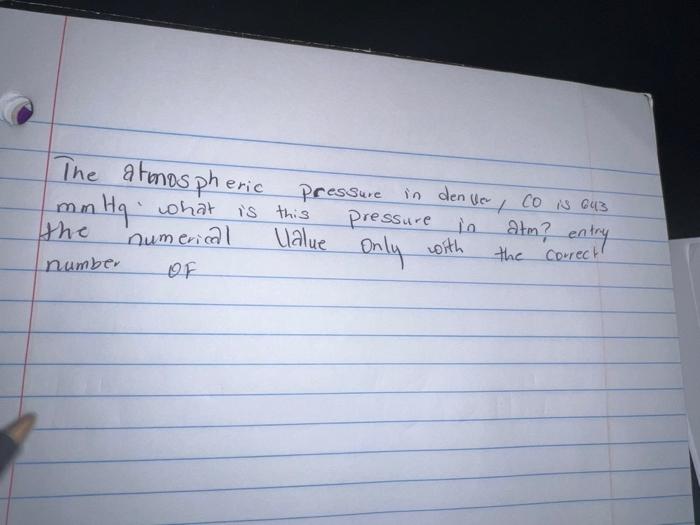 The atmospheric pressure in denver, CO is 643
mmHg. what is this pressure in atm? entry
the numerical Value Only with the correct
number OF